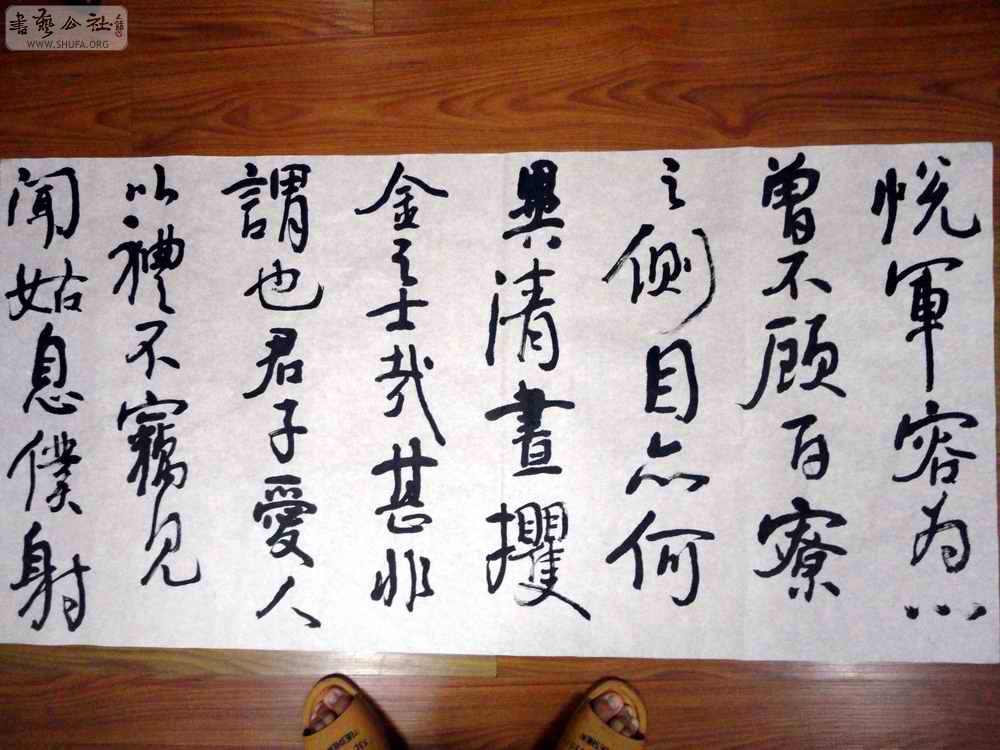 悦軍容为心
曾不顾百寮
之側目亦何
異清晝攫
金之士哉甚非
謂也君子愛人
以禮不竊見
聞姑息僕射
書藝公社
WWW.SHUFA.ORG